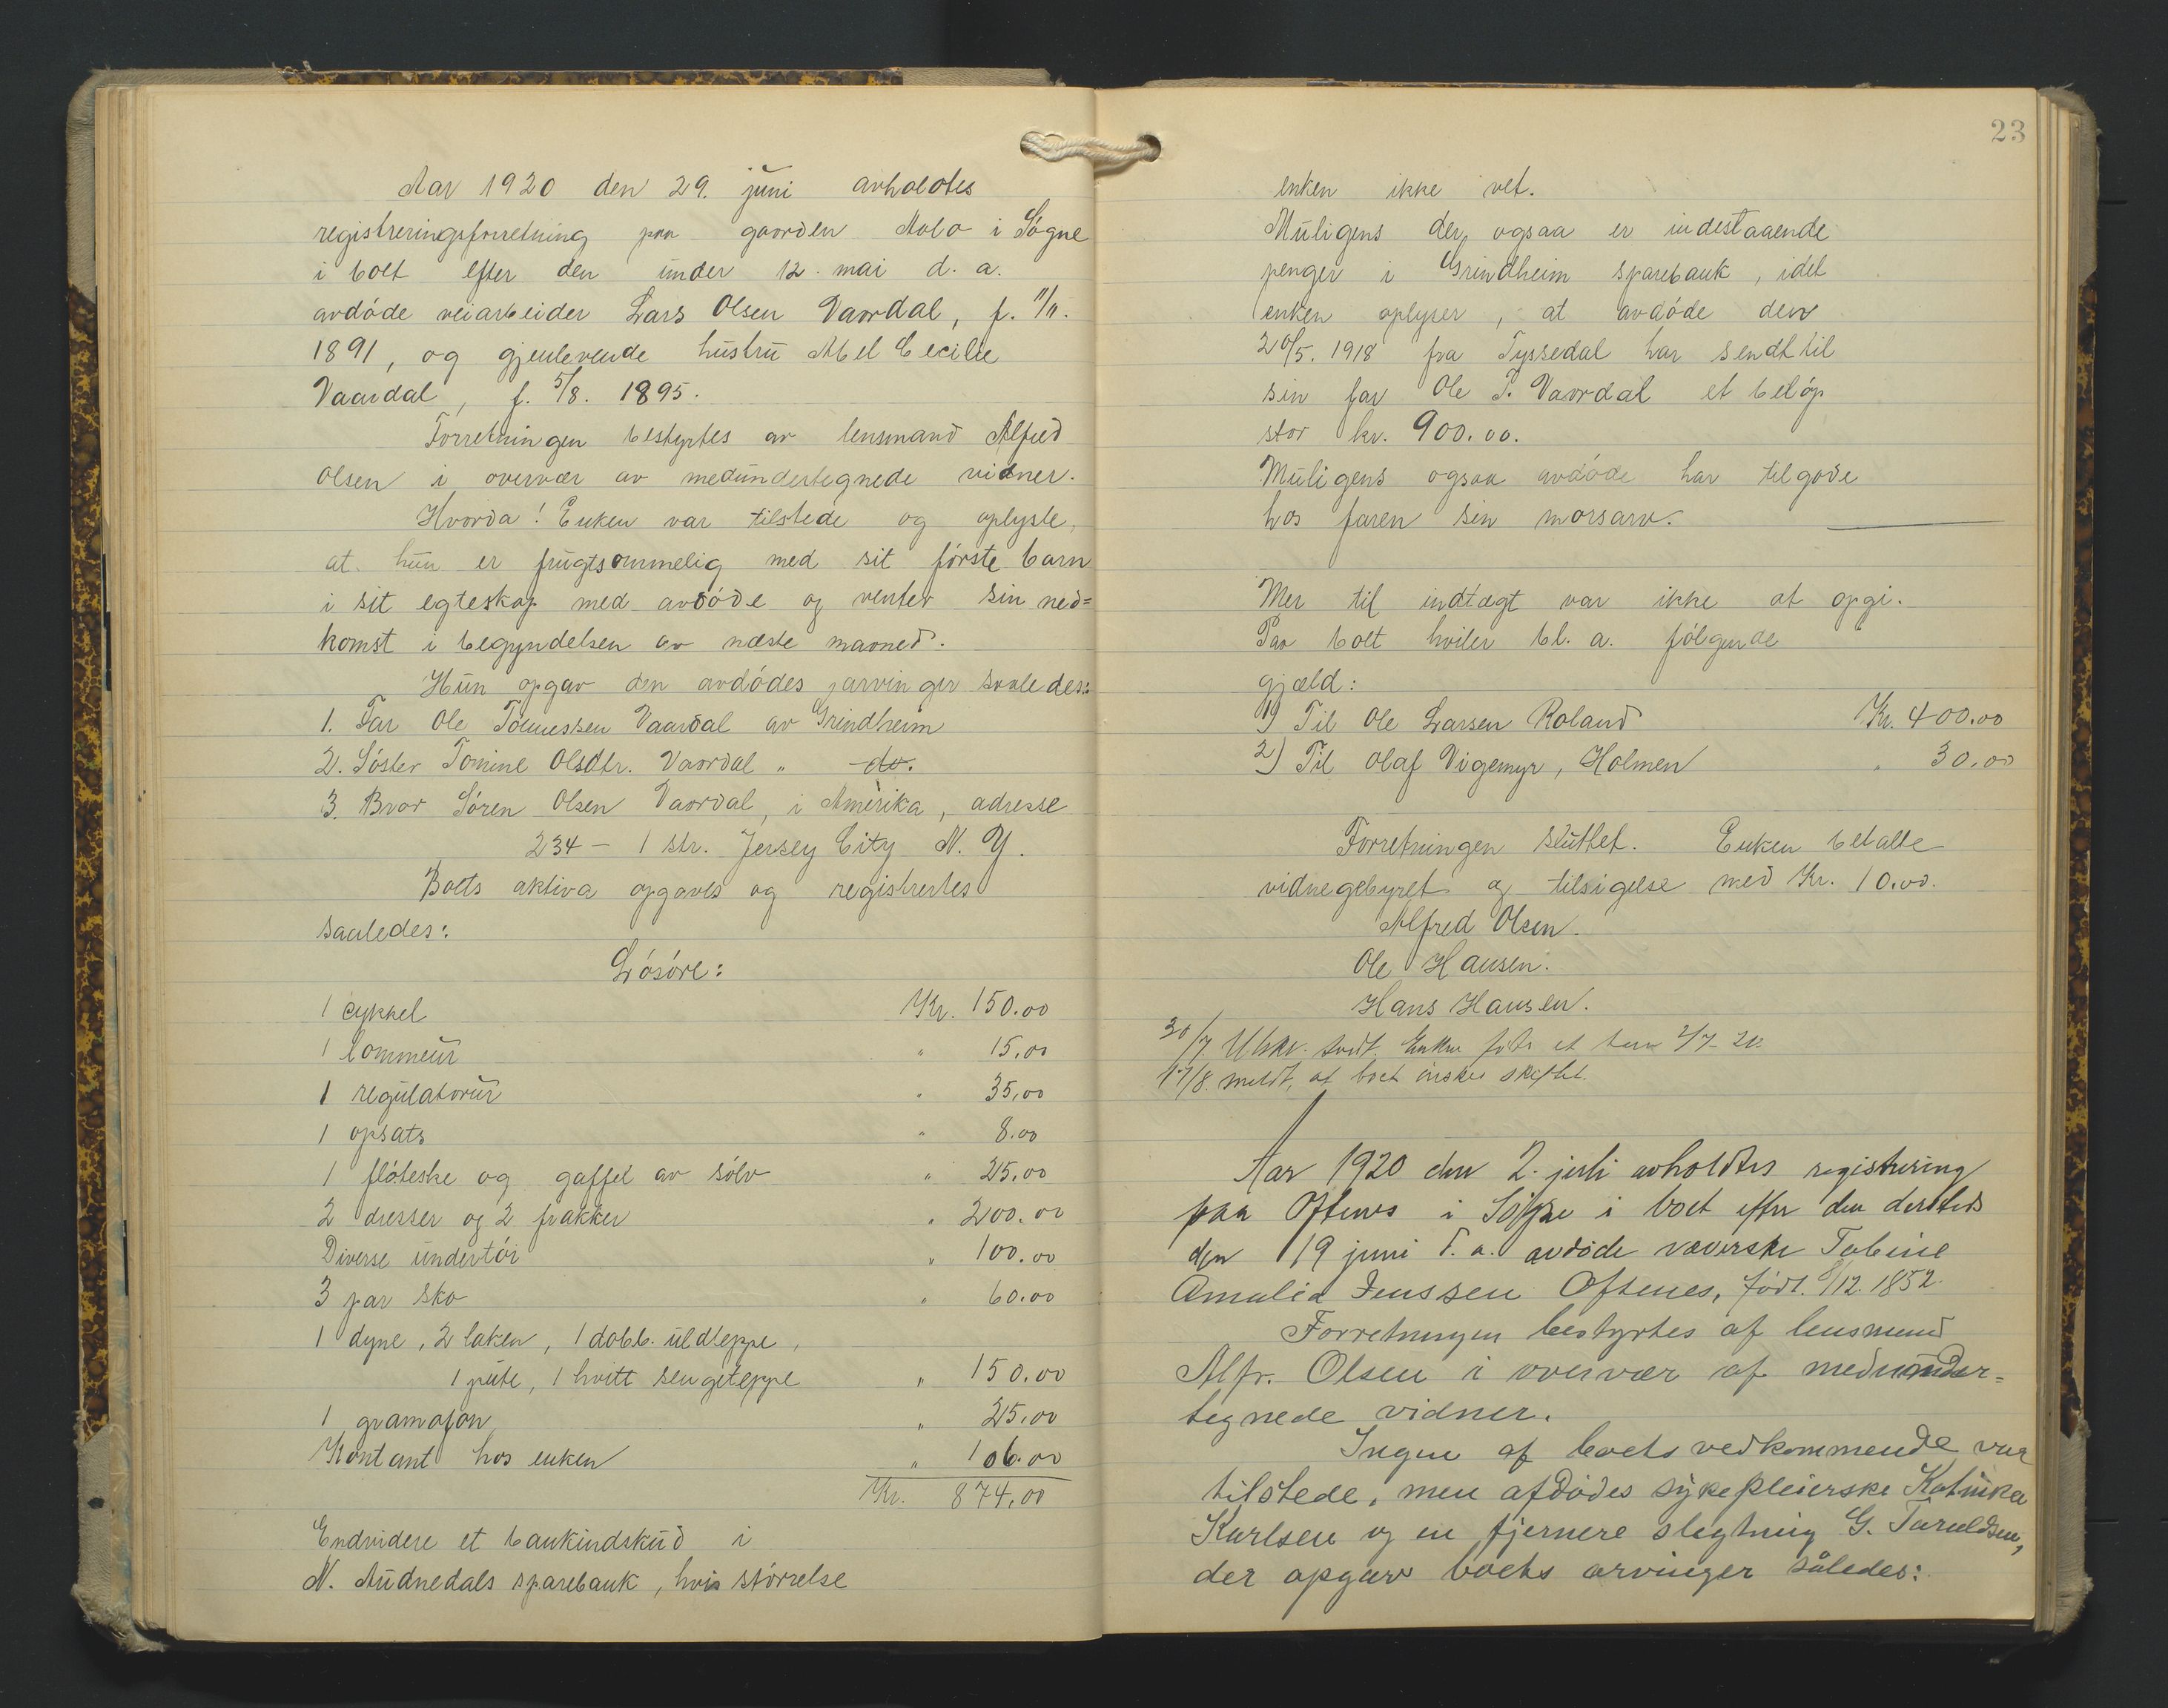 Aar 1920 den 29. juni avholdtes
registreringsforretning paa gaarden Aalo i Søgne
i boet efter den under 12. mai d. a.
avdøde veiarbeider Lars Olsen Vaardal, f. 11/11.
1891, og gjenlevende hustru Abel Cecilie
Vaardal, f. 5/8. 1895.
Forretningen bestyrtes av lensmand Alfred
Olsen i overvær av medundertegnede vidner.
Hvorda! Enken var tilstede og oplyste,
at hun er frugtsommelig med sit første barn
i sit egteskap med avdøde og venter sin ned=
komst i begyndelsen av næste maaned.
Hun opgav den avdødes arvinger saaledes:
1. Far Ole Tønnessen Vaardal av Grindheim
2. Søster Tomine Olsdtr. Vaardal " do.
3. Bror Søren Olsen Vaardal, i Amerika, adresse
234 – 1 str. Jersey City N. Y.
Boets aktiva opgaves og registrertes
saaledes:
Løsøre:
1 cykkel Kr. 150.00
1 lommeur " 15.00
1 regulatorur " 35.00
1 opsats " 8.00
1 fløteske og gaffel av sølv " 25.00
2 dresser og 2 frakker " 200.00
Diverse undertøi " 100.00
3 par sko " 60.00
1 dyne, 2 laken, 1 dobb. uldteppe,
1 pute, 1 hvitt sengeteppe " 150.00
1 gramofon " 25.00
Kontant hos enken " 106.00
Kr. 874.00
Endvidere et bankindskud i
N. Audnedals sparebank, hvis størrelse
23
enken ikke vet.
Muligens der ogsaa er indestaaende
penger i Grindheim sparebank, idet
enken oplyser, at avdøde den
20/5. 1918 fra Tyssedal har sendt til
sin far Ole T. Vaardal et beløp
stor kr. 900.00.
Muligens ogsaa avdøde har tilgode
hos faren sin morsarv.
Mer til indtægt var ikke at opgi.
Paa boet hviler bl. a. følgende
gjæld:
1) Til Ole Larsen Roland Kr. 400.00
2) Til Olaf Vigemyr, Holmen " 30.00
Forretningen sluttet. Enken betalte
vidnegebyret og tilsigelse med Kr. 10.00.
Alfred Olsen.
Ole Hansen.
Hans Hansen.
30/7 Utskr. sendt. Enken født et barn 2/7-20.
17/8. meldt, at boet ønskes skiftet.
Aar 1920 den 2. juli avholdtes registrering
paa Oftenes i Søgne i boet efter den dersteds
den 19 juni d. a. avdøde væverske Tobine
Amalia Jenssen Oftenes, født 8/12. 1852.
Forretningen bestyrtes af lensmand
Alfr. Olsen i overvær af medunder=
tegnede vidner.
Ingen af boets vedkommende var
tilstede, men afdødes sykepleierske Katinka
Karlsen og en fjernere slegtning G. Taraldsen,
der opgav boets arvinger således: